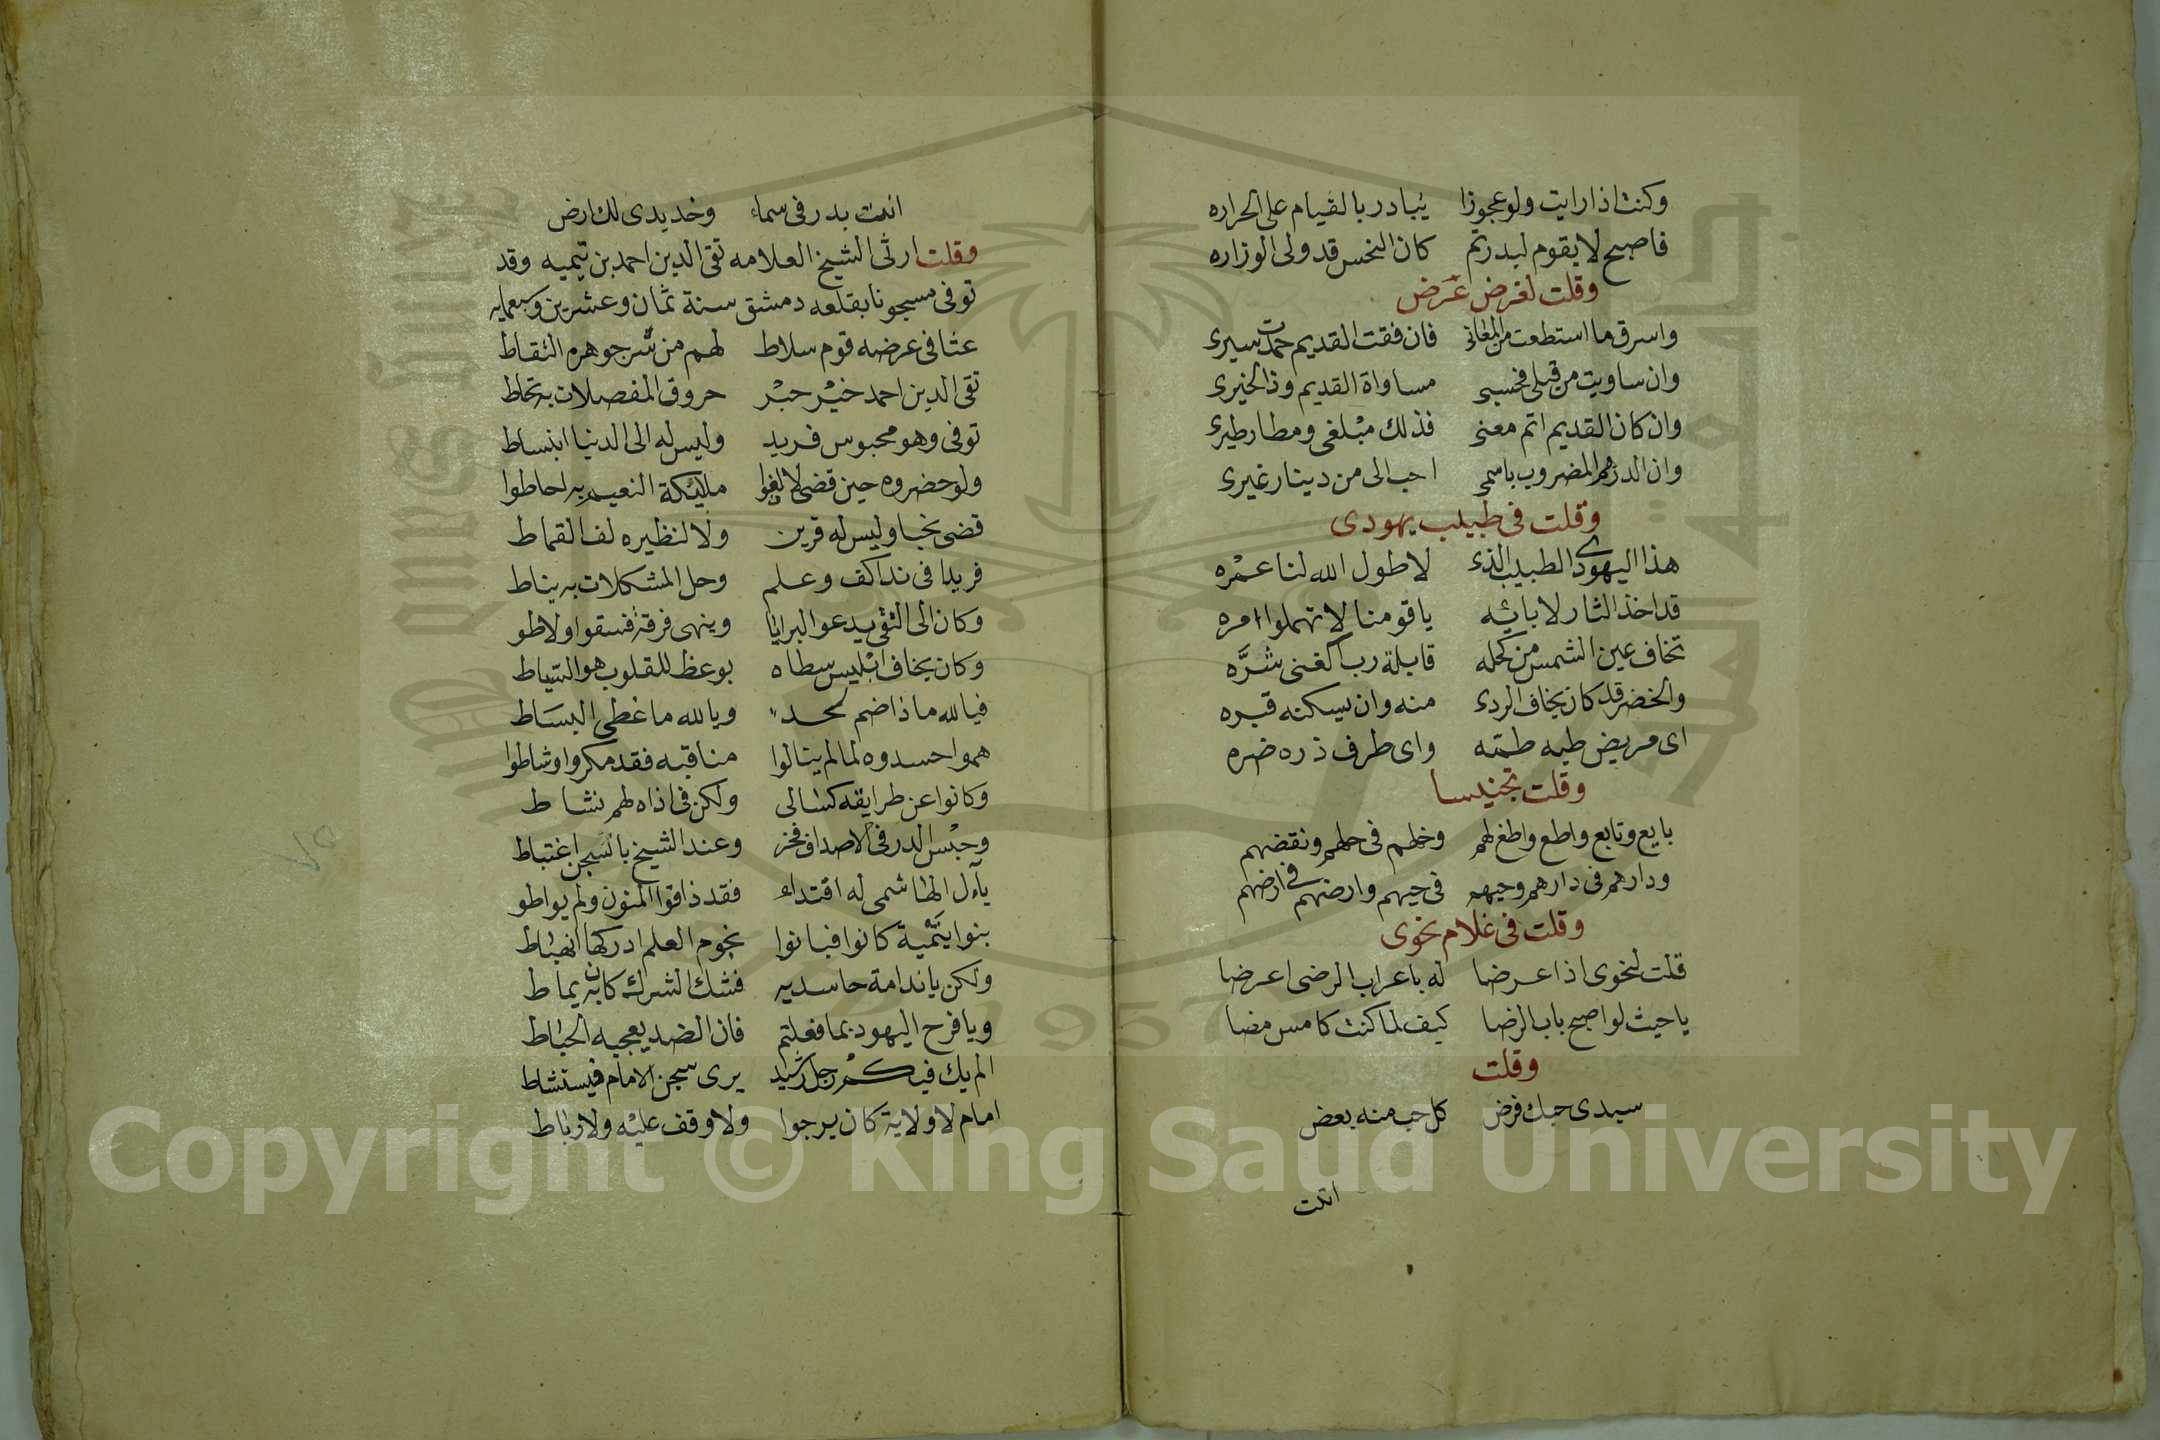 وكنت اذا رايت ولو عجوزا يبادر بالقيام على الحراره
فاصبح لا يقوم لبدرتم كان النحس قد ولى الوزاره
وقلت لغرض عرض
واسرق ما استطعت من المعانى فان فقت القديم حمدت سيرى
وان ساويت من قبلى فحسبى مساواة القديم وذا لخيرى
وان كان القديم اتم معنى فذلك مبلغى ومطار طيرى
وان الدرهم المضروب باسمى احب الى من دينار غيرى
وقلت فى طبيب يهودى
هذا اليهودى الطبيب الذى لا طول الله لنا عمره
قد اخذ الثار لابائه يا قومنا لا تهملوا امره
تخاف عين الشمس من كحله قايلة رب اكفنى شره
والخضر قد كان يخاف الردى منه وان يسكنه قبره
اى مريض طبه طمه واى طرف ذره ضره
وقلت تجنيسا
بايع وتابع واطع واطغ لهم وخلهم فى حلهم ونقضهم
ودارهم فى دارهم وحيهم فى حيهم وارضهم فى ارضهم
وقلت فى غلام نحوى
قلت لنحوى اذا عرضا له باعراب الرضى اعرضا
يا حيث لو اصبح باب الرضا كيف لما كنت كامس مضا
وقلت
سيدى حبك فرض كل حب منه بعض
انت
انت بدر فى سماء وخديدى لك ارض
وقلت ارثى الشيخ العلامه تقى الدين احمد بن تيميه وقد
توفى مسجونا بقلعه دمشق سنة ثمان وعشرين وسبعمايه
عثا فى عرضه قوم سلاط لهم من نثر جوهره التقاط
تقى الدين احمد خير حبر خروق المفصلات به تخاط
توفى وهو محبوس فريد وليس له الى الدنيا انبساط
ولو حضروه حين قضى لالفوا مليكة النعيم به احاطوا
قضى نحبا وليس له قرين ولا لنظيره لف القماط
فريدا فى ندا كف وعلم وحل المشكلات به يناط
وكان الى التقى يدعو البرايا وينهى فرقة فسقوا ولاطو
وكان يخاف ابليس سطاه بوعظ للقلوب هو السياط
فيا لله ماذا ضم لحد ويا لله ما غطى البساط
هموا حسدوه لما لم ينالوا مناقبه فقد مكروا وشاطوا
وكانوا عن طرايقه كسالى ولكن فى اذاه لهم نشاط
وحبس الدر فى الاصداف فخر وعند الشيخ بالسجن اغتباط
بآل الهاشمى له اقتداء فقد ذاقوا المنون ولم يواطو
بنوا تيمية كانوا فبانوا نجوم العلم ادركها انهباط
ولكن يا ندامة حاسديه فشك الشرك كان به يماط
ويا فرح اليهود بما فعلتم فان الضد يعجبه الخباط
الم يك فيكم رجل رشيد يرى سجن الامام فيستشاط
امام لا ولاية كان يرجوا ولا وقف عليه ولا رباط
Copyright © King Saud University
King Saud University
1957